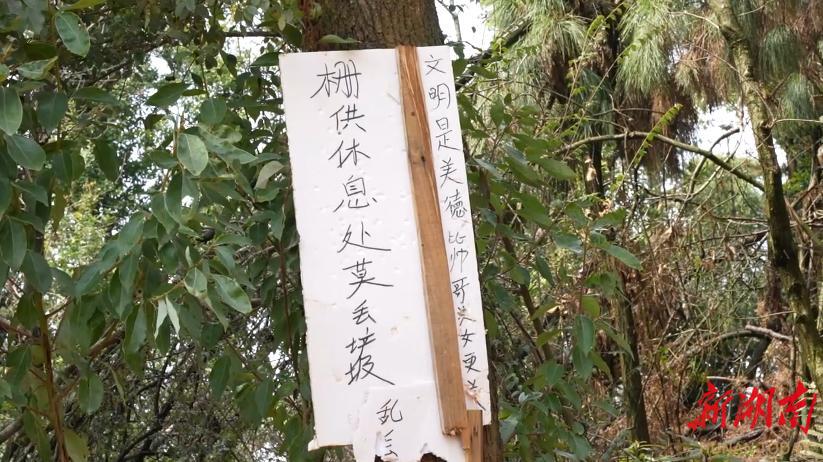 文明是美德比帅哥美女更美
栅供休息处莫丢垃圾
乱丢
新湖南